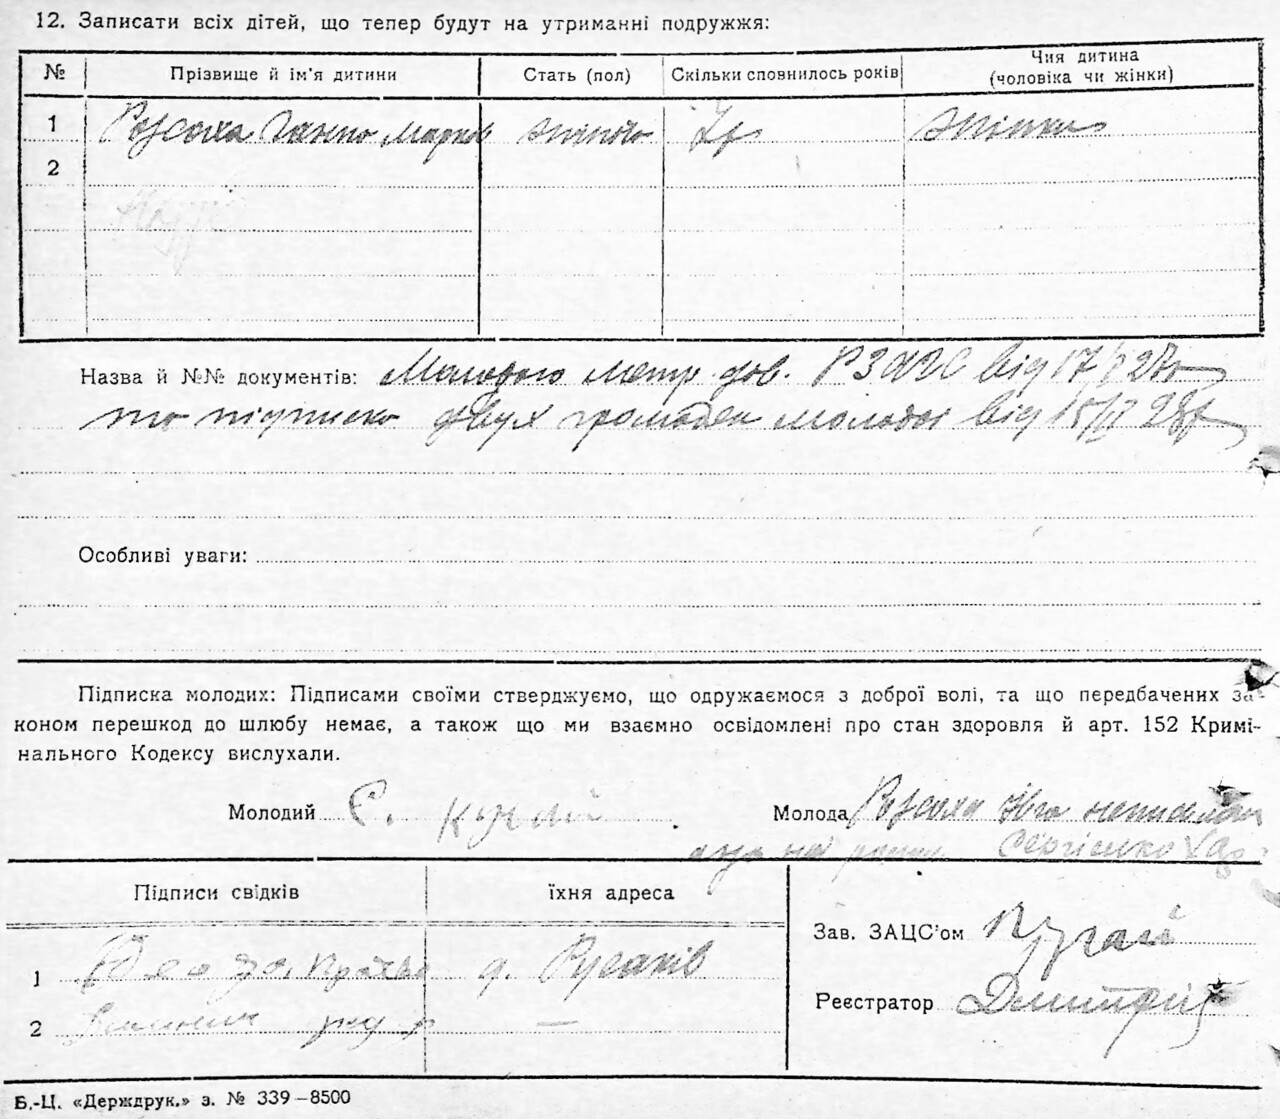 12. Записати всіх дітей, що тепер будут на утриманні подружжя:
№ Прізвище й ім'я дитини Стать (пол) Скільки сповнилось років Чия дитина (чоловіка чи жінки)
1 Русоха Ганна Марков жіноча жінки
2
Назва й №№ документів: Молодого метр. дов. РЗАГС від 17/I 27р
та підписка двух громадян молодої від 15/II 28р
Особливі уваги:
Підписка молодих: Підписами своїми стверджуємо, що одружаємося з доброї волі, та що передбачених за-
коном перешкод до шлюбу немає, а також що ми взаємно освідомлені про стан здоровля й арт. 152 Кримі-
нального Кодексу вислухали.
Молодий Є. Кугай Молода Русоха
Сергієнко
Підписи свідків їхня адреса
Зав. ЗАЦС'ом Кугай
1 д. Русанів
Реєстратор Дмитрій
2 —
Б.-Ц. «Держдрук.» з. № 339–8500